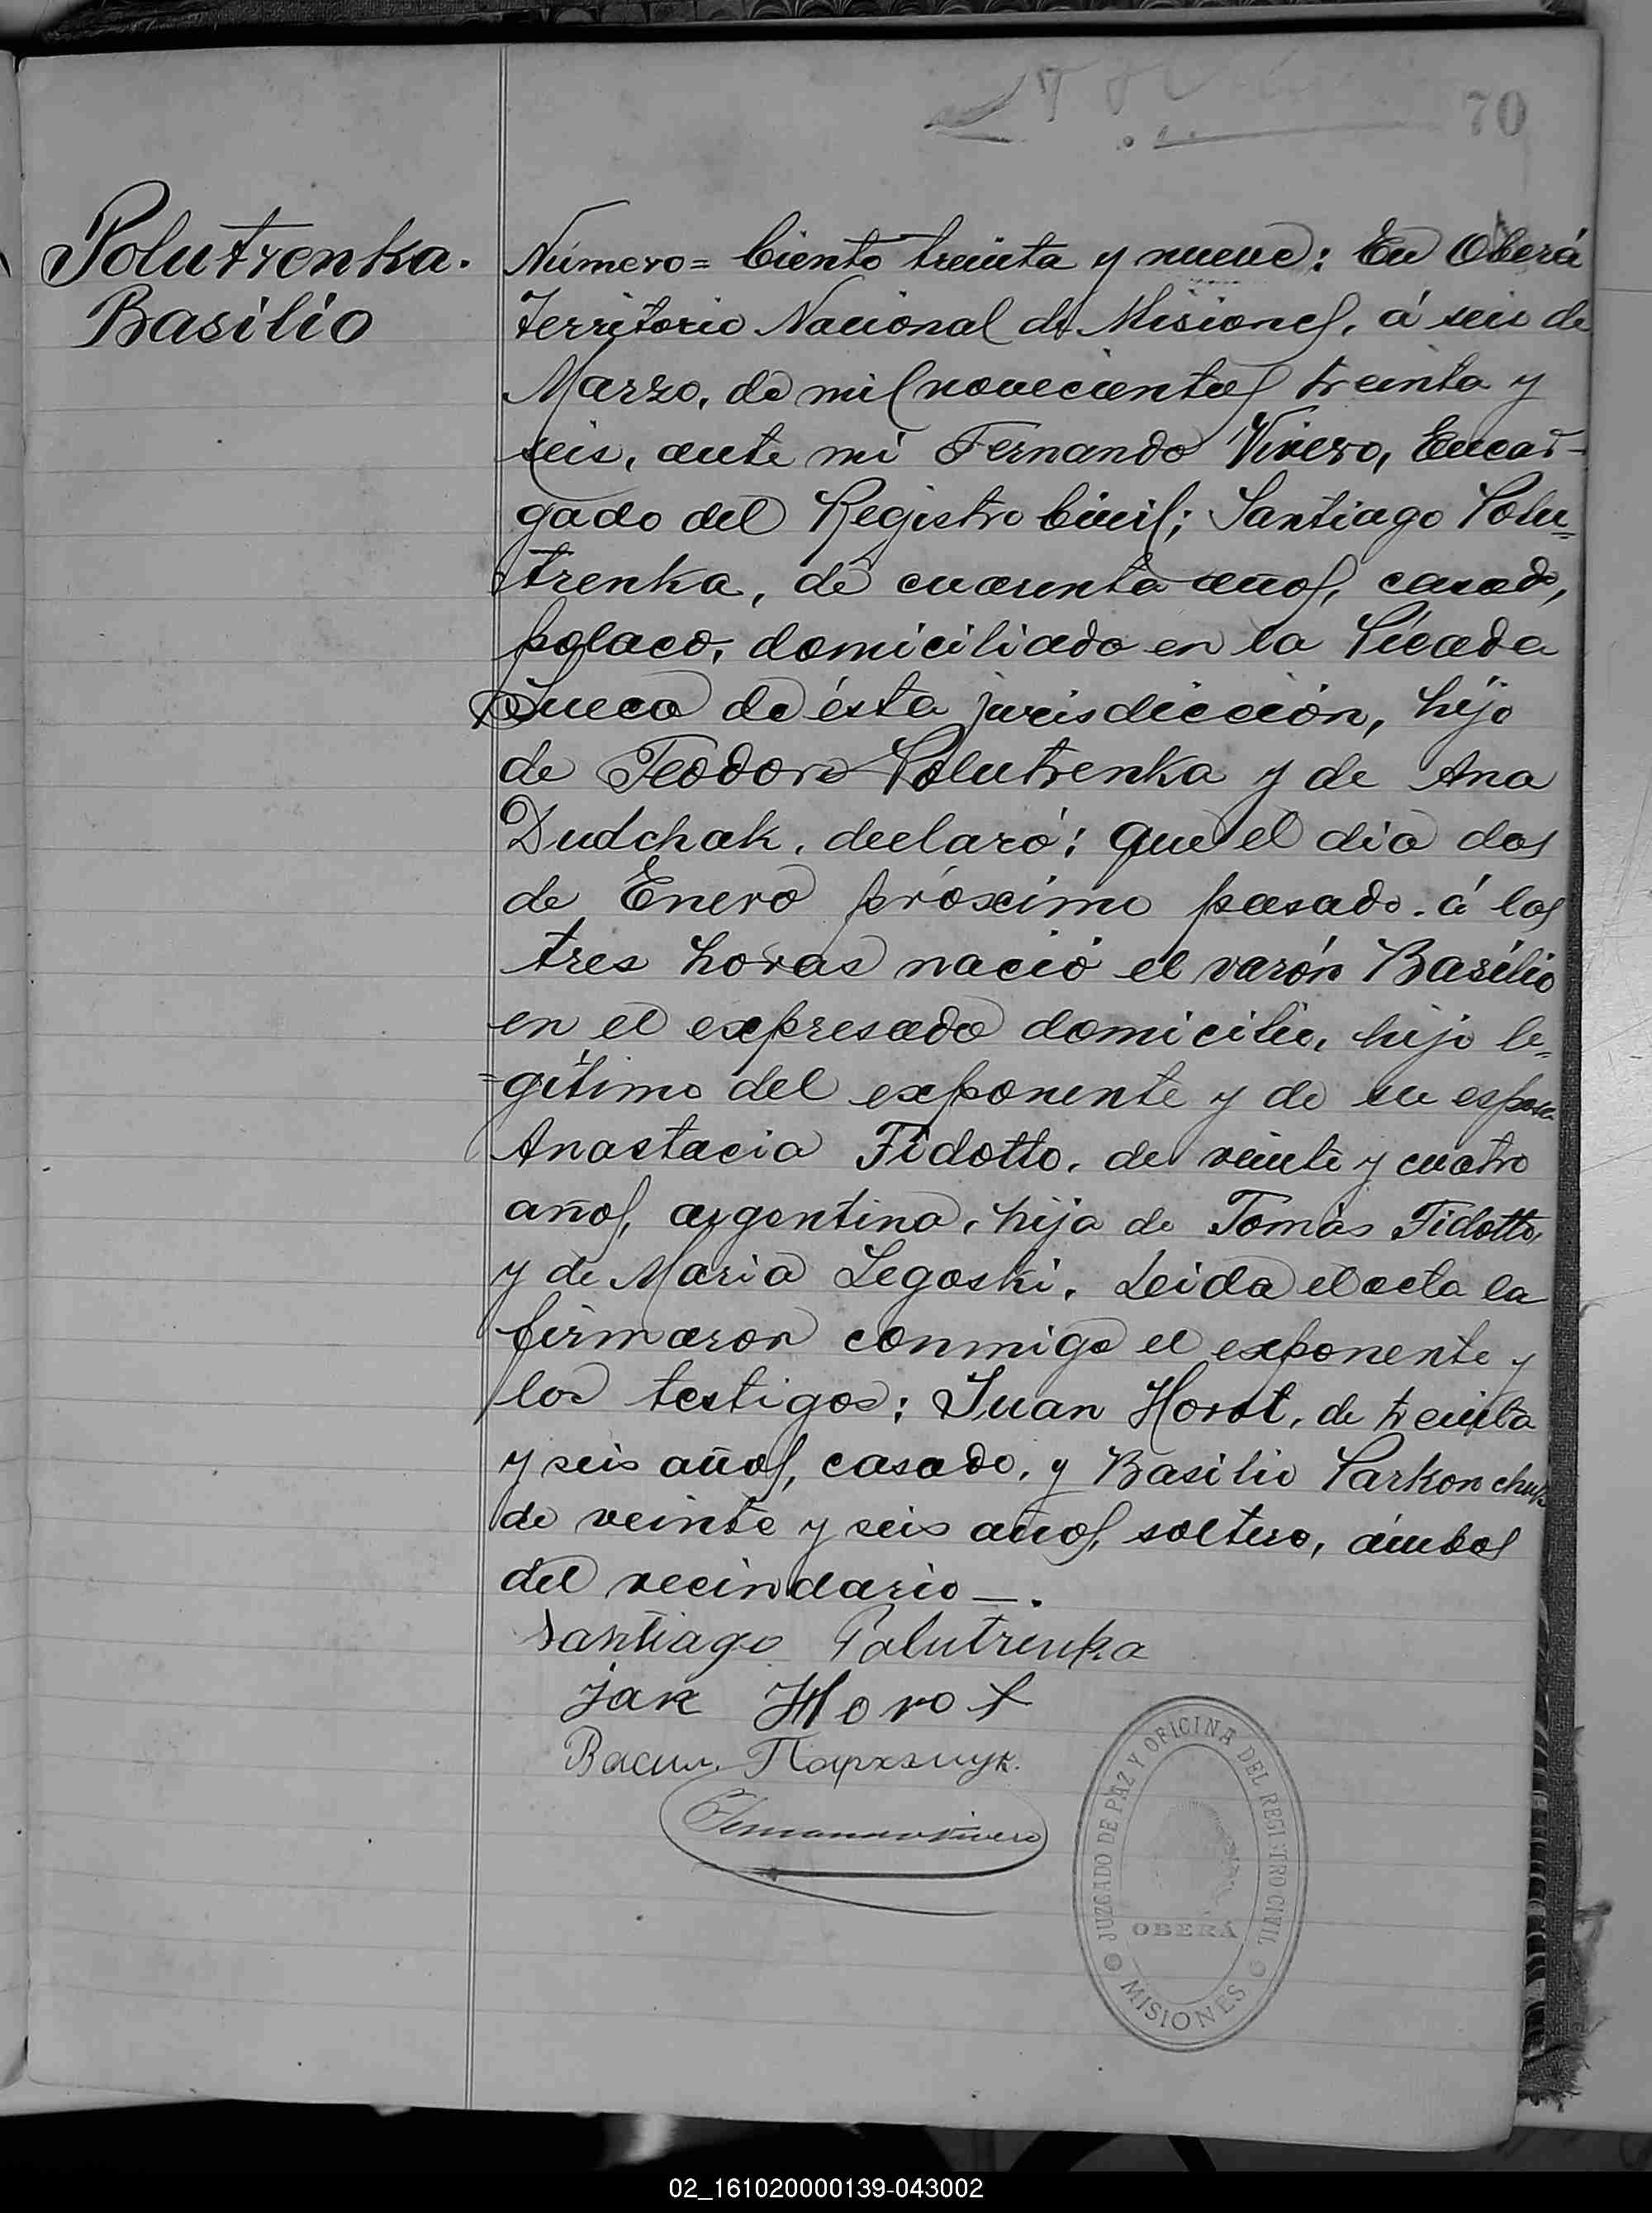 70
Polutrenka.
Basilio
Número = Ciento treinta y nueve: En Oberá
Territorio Nacional de Misiones, á seis de
Marzo, de mil novecientos treinta y
seis, ante mi Fernando Vivero, Encar-
gado del Registro Civil; Santiago Polu=
trenka, de cuarenta años, casado,
polaco, domiciliado en la Picada
Sueca de ésta jurisdicción, hijo
de Teodoro Polutrenka y de Ana
Dudchak, declaró: Que el dia dos
de Enero próximo pasado, á las
tres horas nació el varón Basilio
en el expresado domicilio, hijo le=
=gitimo del exponente y de su esposa
Anastacia Fidotto, de veinte y cuatro
años, argentina, hija de Tomás Fidotto,
y de Maria Legoski. Leida el acta la
firmaron conmigo el exponente y
los testigos: Juan Horot, de treinta
y seis años, casado, y Basilio Parkonchuk
de veinte y seis años, soltero, ámbos
del vecindario —.
Santiago Polutrenka
Jan Horot
Васил Пархомук.
Fernando Vivero
JUZGADO DE PAZ Y OFICINA DEL REGISTRO CIVIL
OBERÁ
MISIONES
02_161020000139-043002